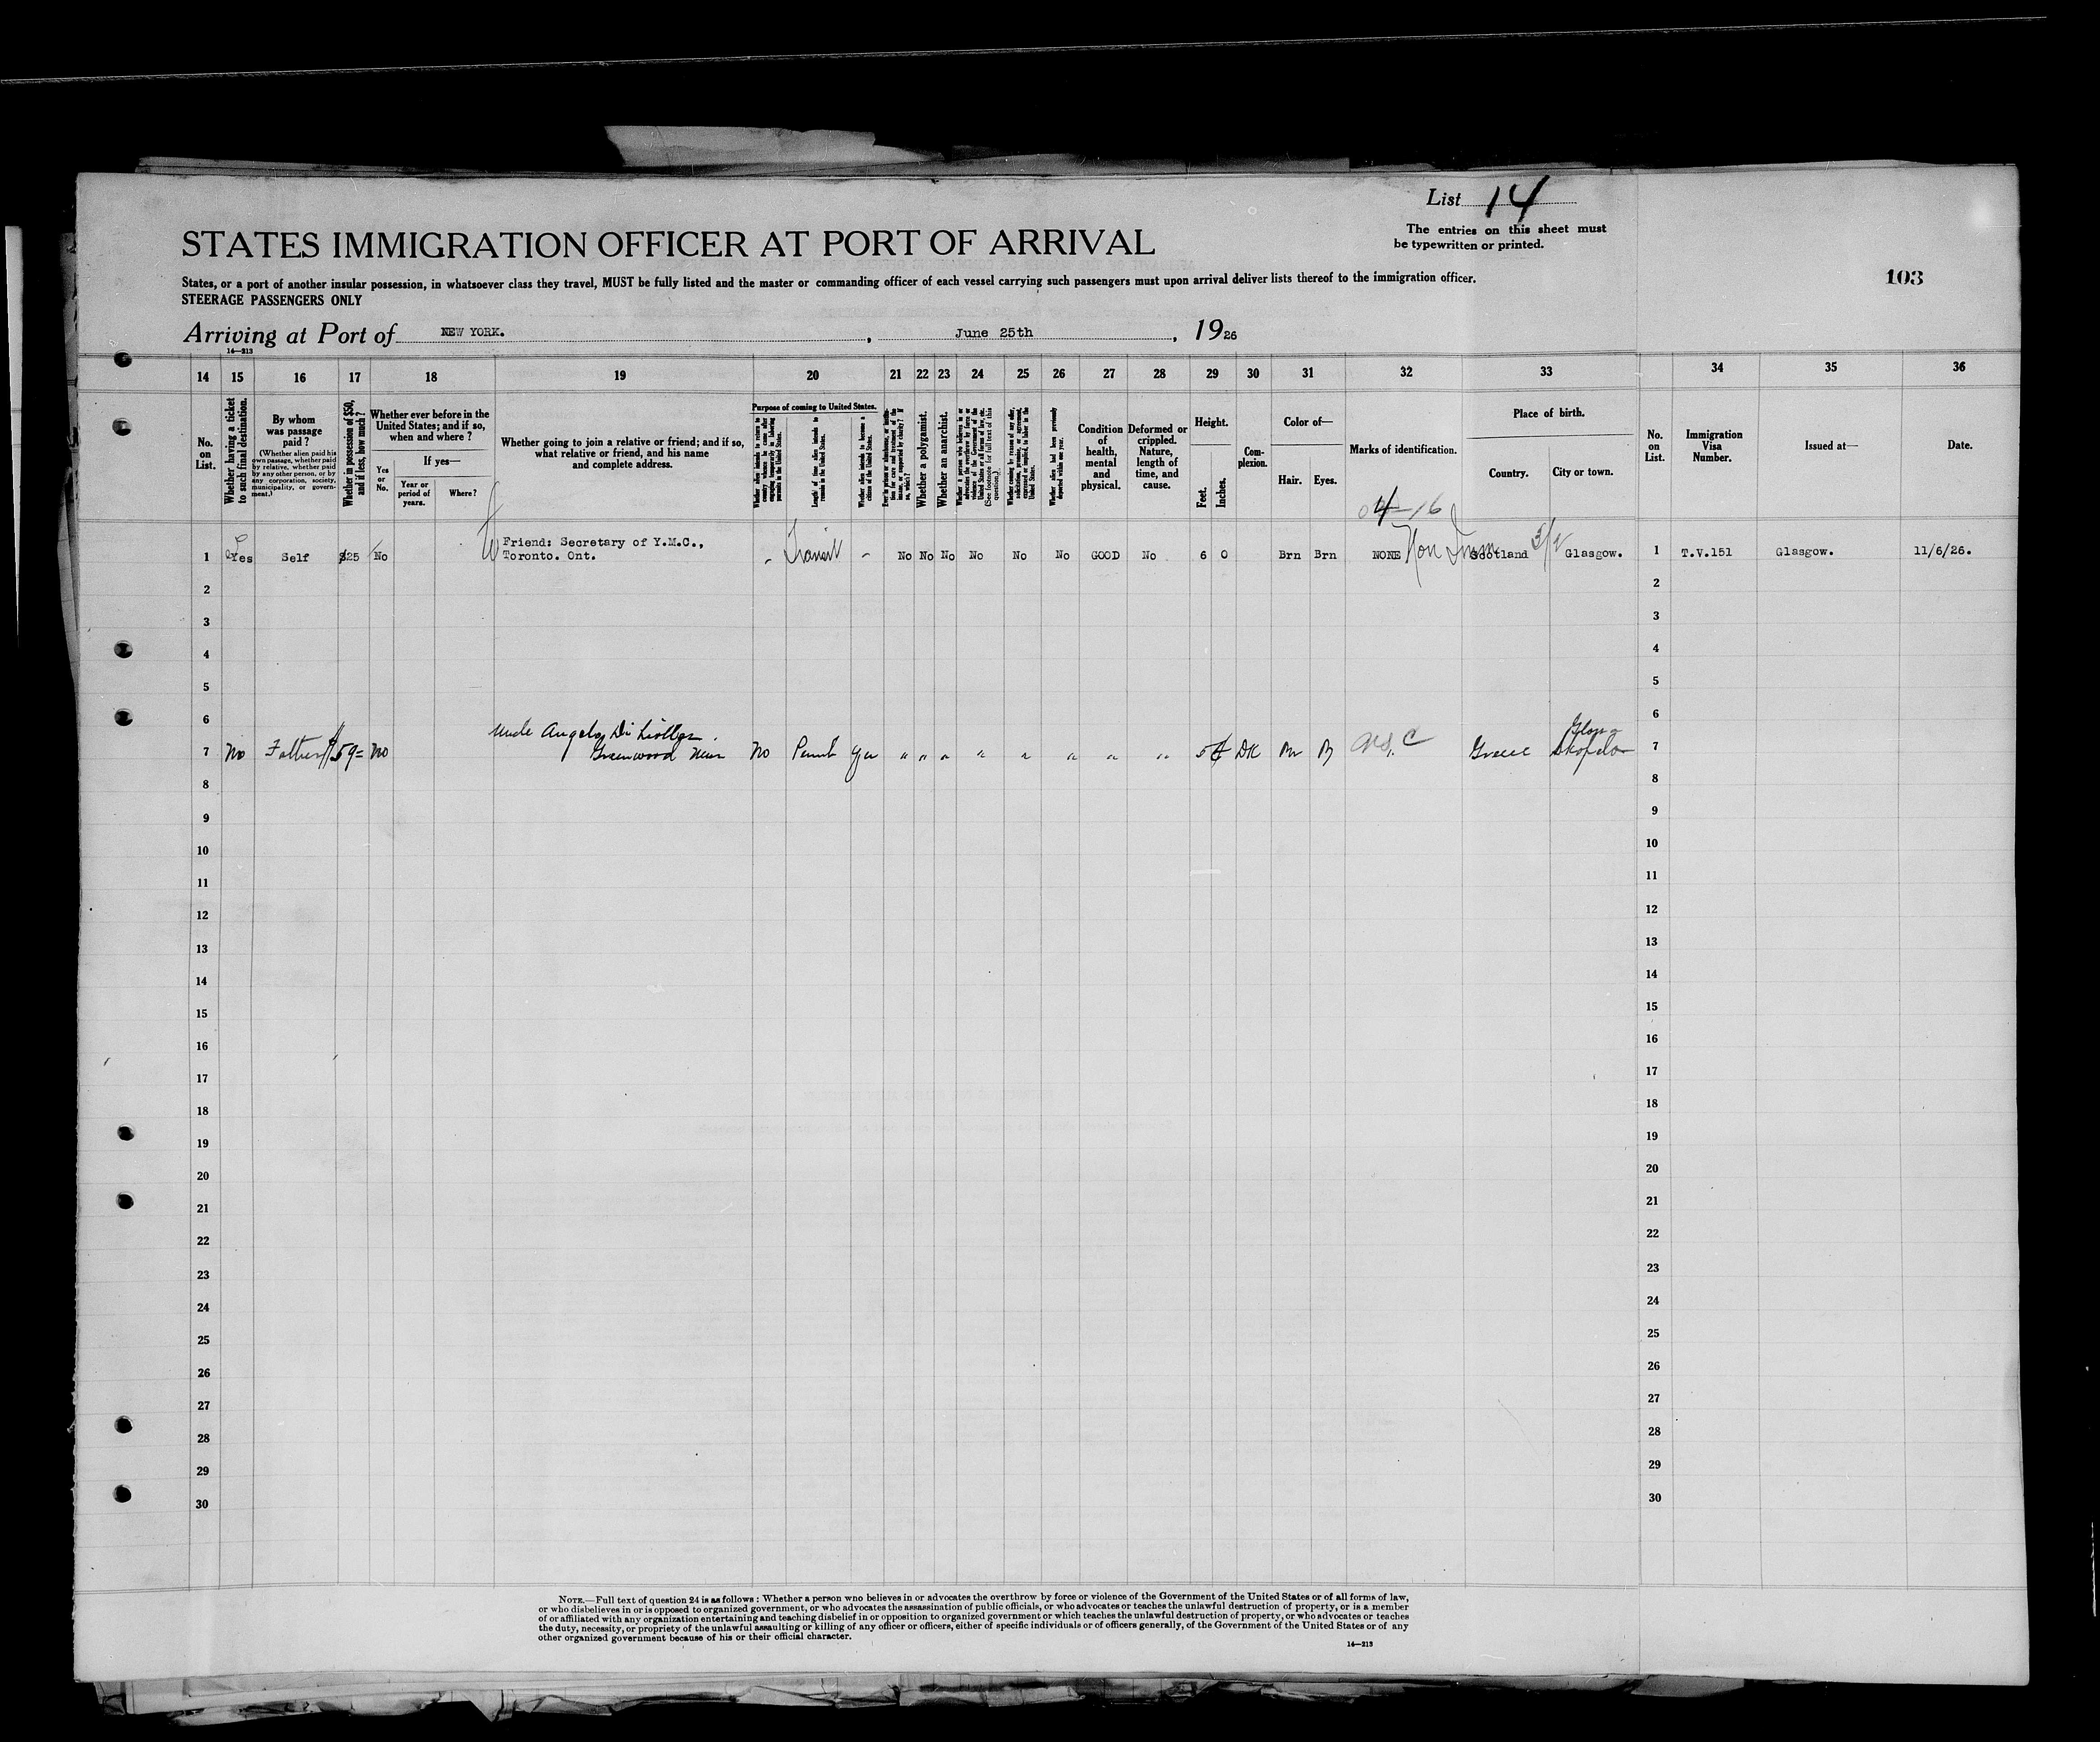 List 14
The entries on this sheet must
be typewritten or printed.
STATES IMMIGRATION OFFICER AT PORT OF ARRIVAL
103
States, or a port of another insular possession, in whatsoever class they travel, MUST be fully listed and the master or commanding officer of each vessel carrying such passengers must upon arrival deliver lists thereof to the immigration officer.
STEERAGE PASSENGERS ONLY
Arriving at Port of NEW YORK. , June 25th , 1926
14—213
14 15 16 17 18 19 20 21 22 23 24 25 26 27 28 29 30 31 32 33 34 35 36
No. on List.
Whether having a ticket to such final destination.
By whom was passage paid?
(Whether alien paid his own passage, whether paid by relative, whether paid by any other person, or by any corporation, society, municipality, or government.)
Whether in possession of $50, and if less, how much?
Whether ever before in the United States; and if so, when and where?
Yes or No.
If yes—
Year or period of years.
Where?
Whether going to join a relative or friend; and if so, what relative or friend, and his name and complete address.
Purpose of coming to United States.
Length of time alien intends to remain in the United States.
Whether alien intends to become a citizen of the United States.
Whether a polygamist.
Whether an anarchist.
(See footnote for full text of this question.)
Whether alien had been previously deported within one year.
Condition of health, mental and physical.
Deformed or crippled. Nature, length of time, and cause.
Height.
Feet.
Inches.
Complexion.
Color of—
Hair.
Eyes.
Marks of identification.
Place of birth.
Country.
City or town.
No. on List.
Immigration Visa Number.
Issued at—
Date.
1 Yes Self $25 No Friend: Secretary of Y.M.C., Toronto. Ont. - Transit - No No No No No No GOOD No 6 0 Brn Brn NONE Non Imm Scotland 3/2 Glasgow. 1 T.V.151 Glasgow. 11/6/26.
2 2
3 3
4 4
5 5
6 6
Uncle Angelos
7 No Father $59= No Greenwood No Perm Yes " " " " " " " " 5 4 DK Br B Greece Skopelos 7
8 8
9 9
10 10
11 11
12 12
13 13
14 14
15 15
16 16
17 17
18 18
19 19
20 20
21 21
22 22
23 23
24 24
25 25
26 26
27 27
28 28
29 29
30 30
NOTE.—Full text of question 24 is as follows: Whether a person who believes in or advocates the overthrow by force or violence of the Government of the United States or of all forms of law,
or who disbelieves in or is opposed to organized government, or who advocates the assassination of public officials, or who advocates or teaches the unlawful destruction of property, or is a member
of or affiliated with any organization entertaining and teaching disbelief in or opposition to organized government or which teaches the unlawful destruction of property, or who advocates or teaches
the duty, necessity, or propriety of the unlawful assaulting or killing of any officer or officers, either of specific individuals or of officers generally, of the Government of the United States or of any
other organized government because of his or their official character.
14—213